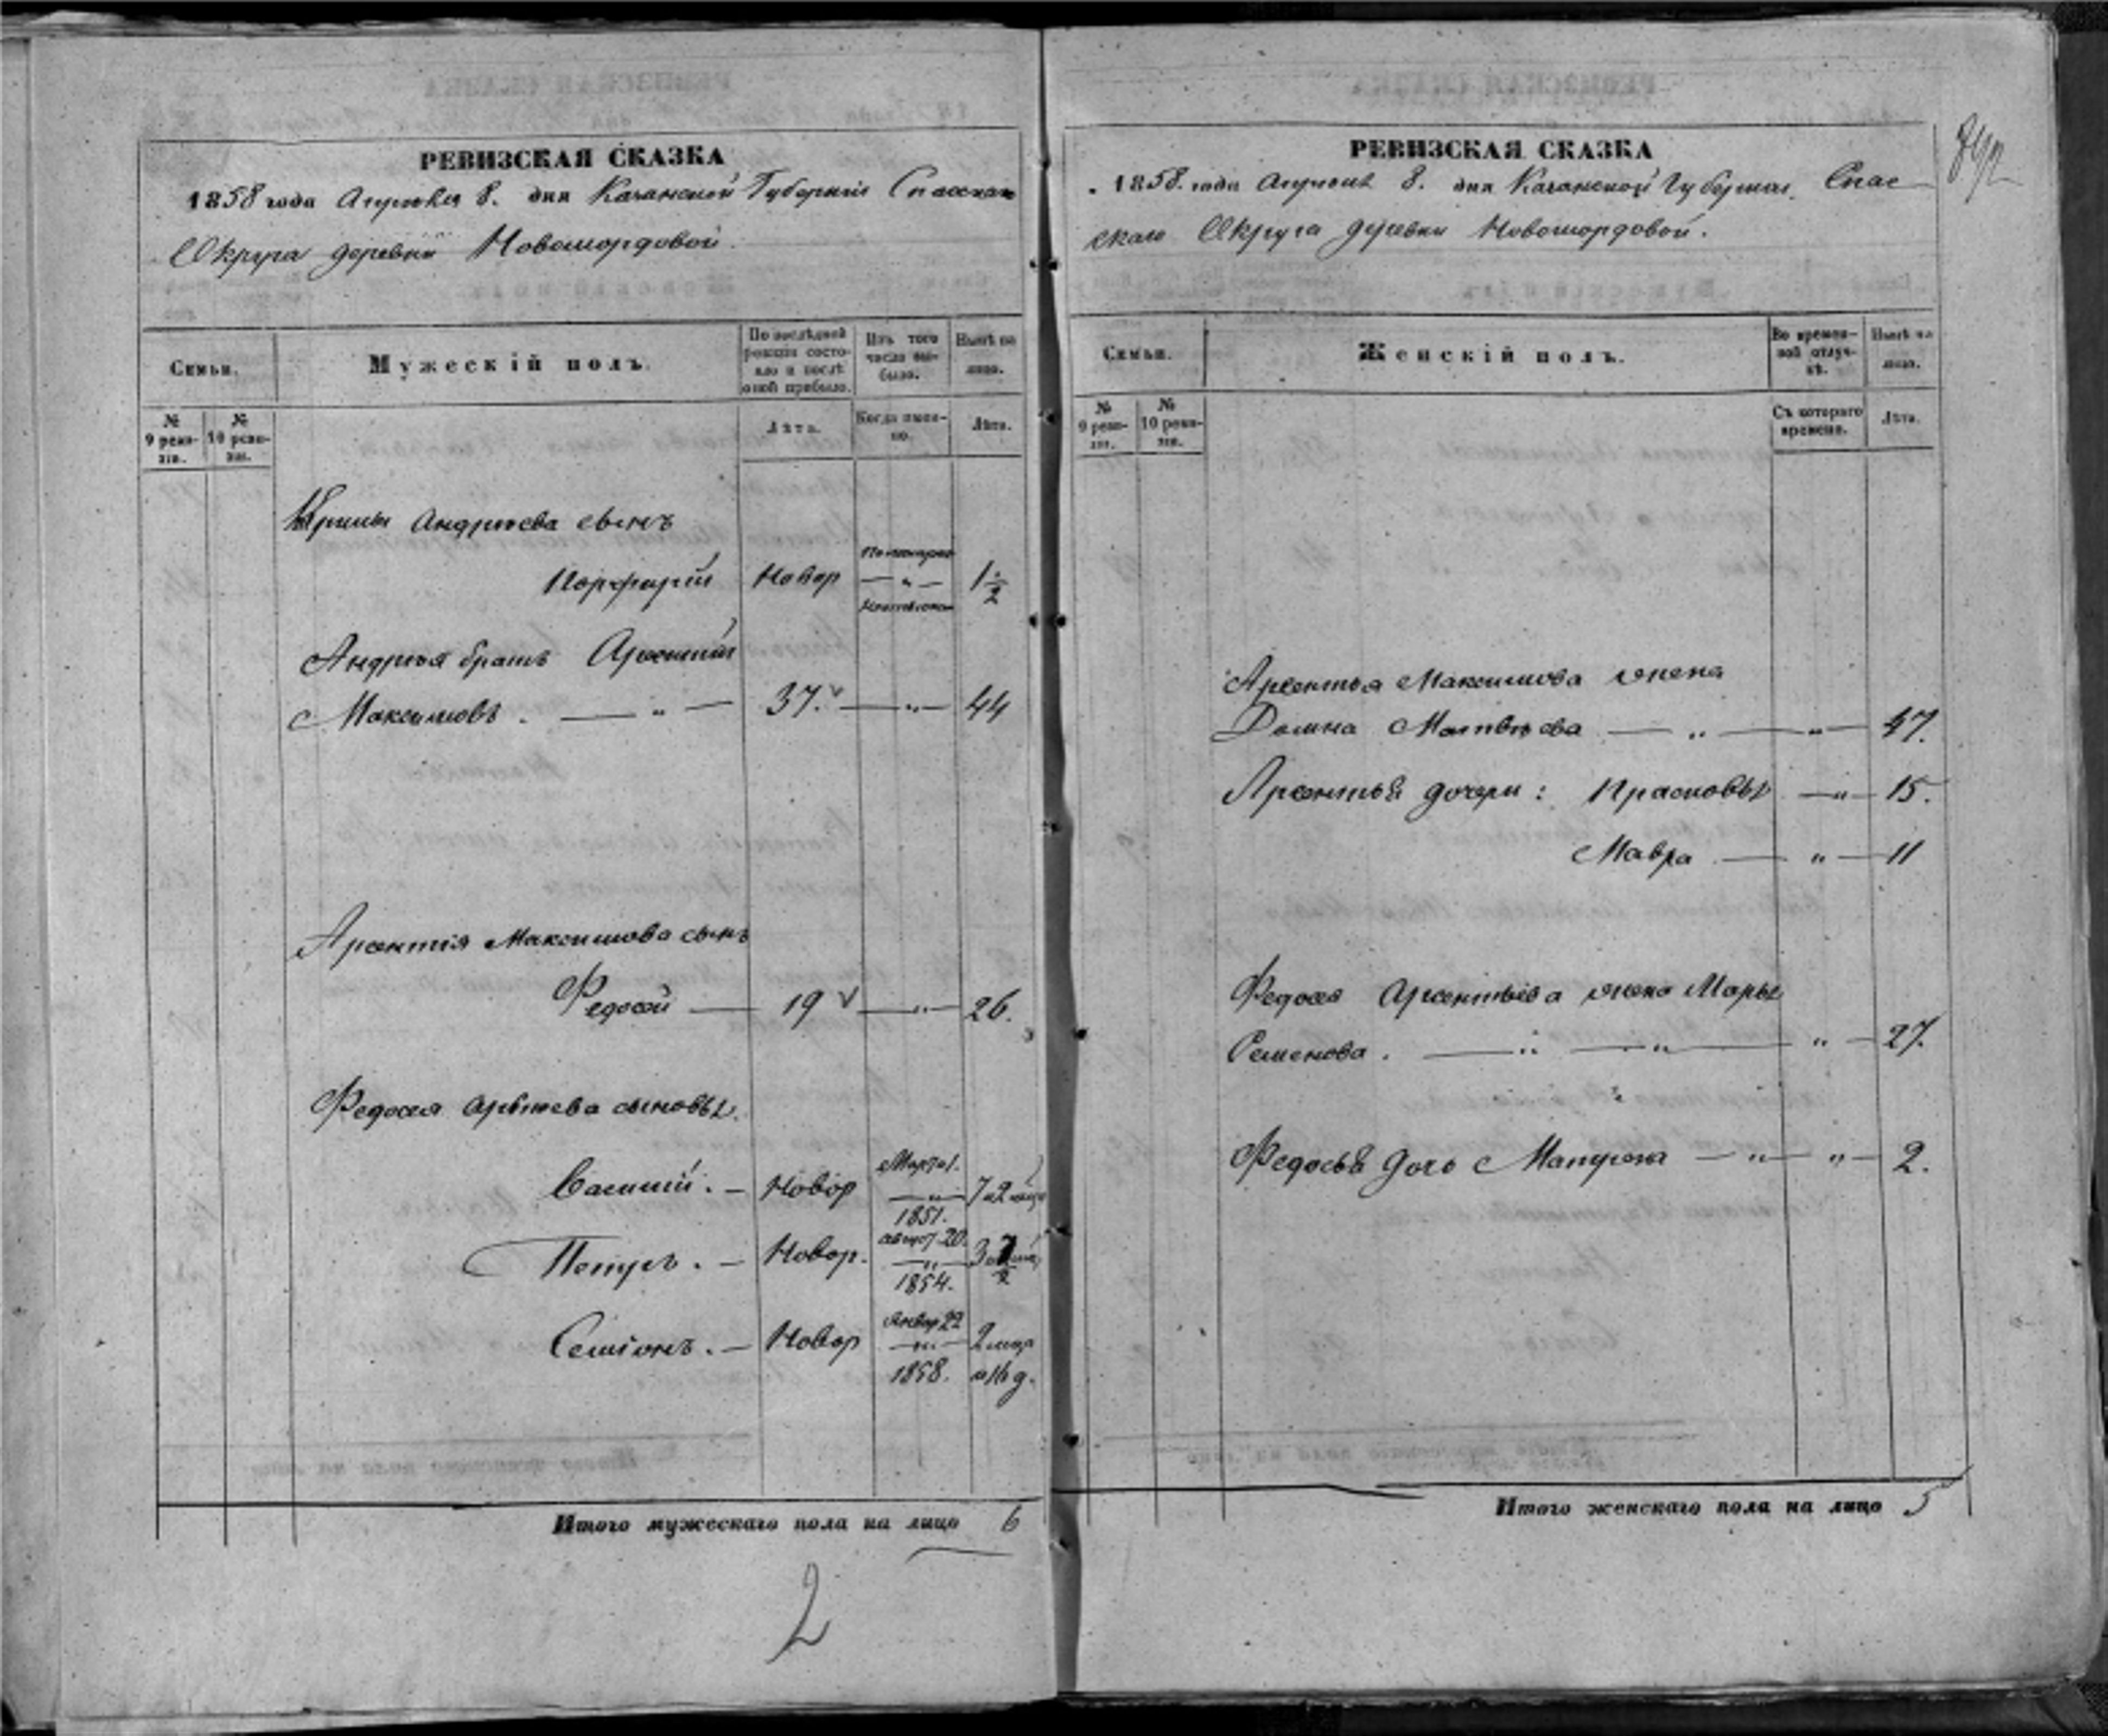 РЕВИЗСКАЯ СКАЗКА
1858 года Апреля 8. дня Казанской Губернии Спасскаго
Округа деревни Новомордовой.
Семьи.
Мужескій полъ.
По послѣдней ревизіи состояло и послѣ оной прибыло.
Изъ того числа выбыло.
Нынѣ на лицо.
№ 9 ревизіи.
№ 10 ревизіи.
Лѣта.
Когда именно.
Лѣта.
Андреева сынъ
Порфирій Новор 1 1/2
Андрея братъ Арсентий
Максимовъ. — „ — 37. — „ — 44
Арсентія Максимова сынъ
Федосей — 19 — „ — 26.
Федосея сыновья.
Василий. — Новор Марта 1. 1851. 7 и 2
Петръ. — Новор. август 20. 1854. 3
Семіонъ. — Новор Январ 22 1858. 2 мѣся и 16 д.
Итого мужескаго пола на лицо 6
2
РЕВИЗСКАЯ СКАЗКА
1858. года Апреля 8. дня Казанской Губернии. Спас
скаго Округа деревни Новомордовой.
Семьи.
Женскій полъ.
Во временной отлучкѣ.
Нынѣ на лицо.
№ 9 ревизіи.
№ 10 ревизіи.
Съ котораго времени.
Лѣта.
Арсентья Максимова жена
Домна Матвѣева — „ — „ — 47.
Арсентья дочери: Прасковья — „ — 15.
Мавра — „ — 11
Федосея Арсентьева жена Марья
Семенова. — „ — „ — „ — 27.
Федосья дочь Матрена — „ — „ — 2.
Итого женскаго пола на лицо 5